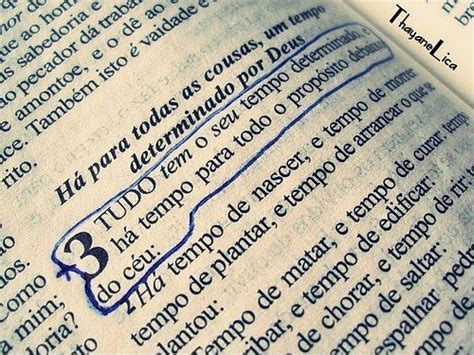 ThayaneLica
sabedoria e
ao pecador dá trabalho
amontoe, e o dê ao
Também isto é vaidade
rito.
Há para todas as cousas, um tempo
determinado por Deus
3 TUDO tem o seu tempo determinado, e
há tempo para todo o propósito debaixo
do céu:
2 Há tempo de nascer, e tempo de morrer
tempo de plantar, e tempo de arrancar o que se
plantou:
tempo de matar, e tempo de curar
tempo de edificar
de chorar, e tempo de
tempo de saltar
espalhar pedr
Como
a mim;
doria?